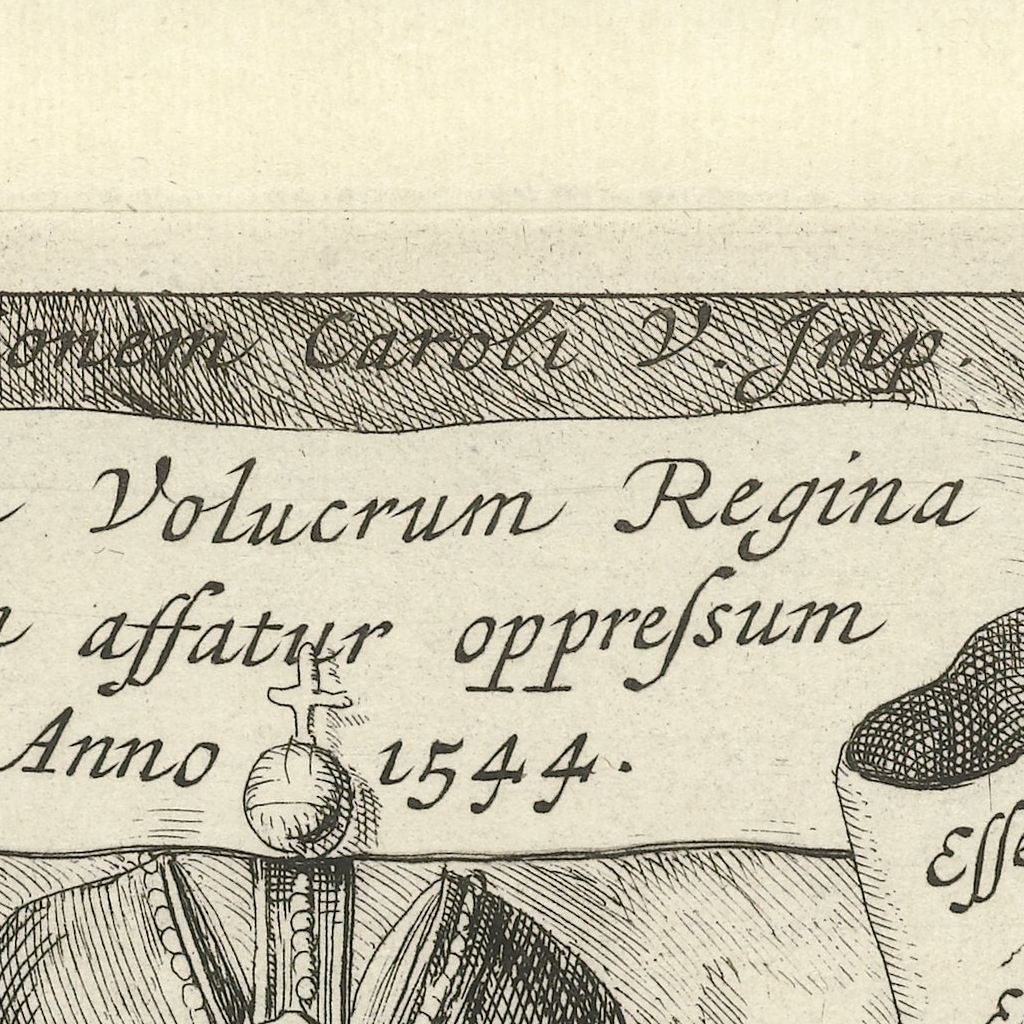 onem Caroli V. Imp.
Volucrum Regina
affatur oppreſsum
Anno 1544.